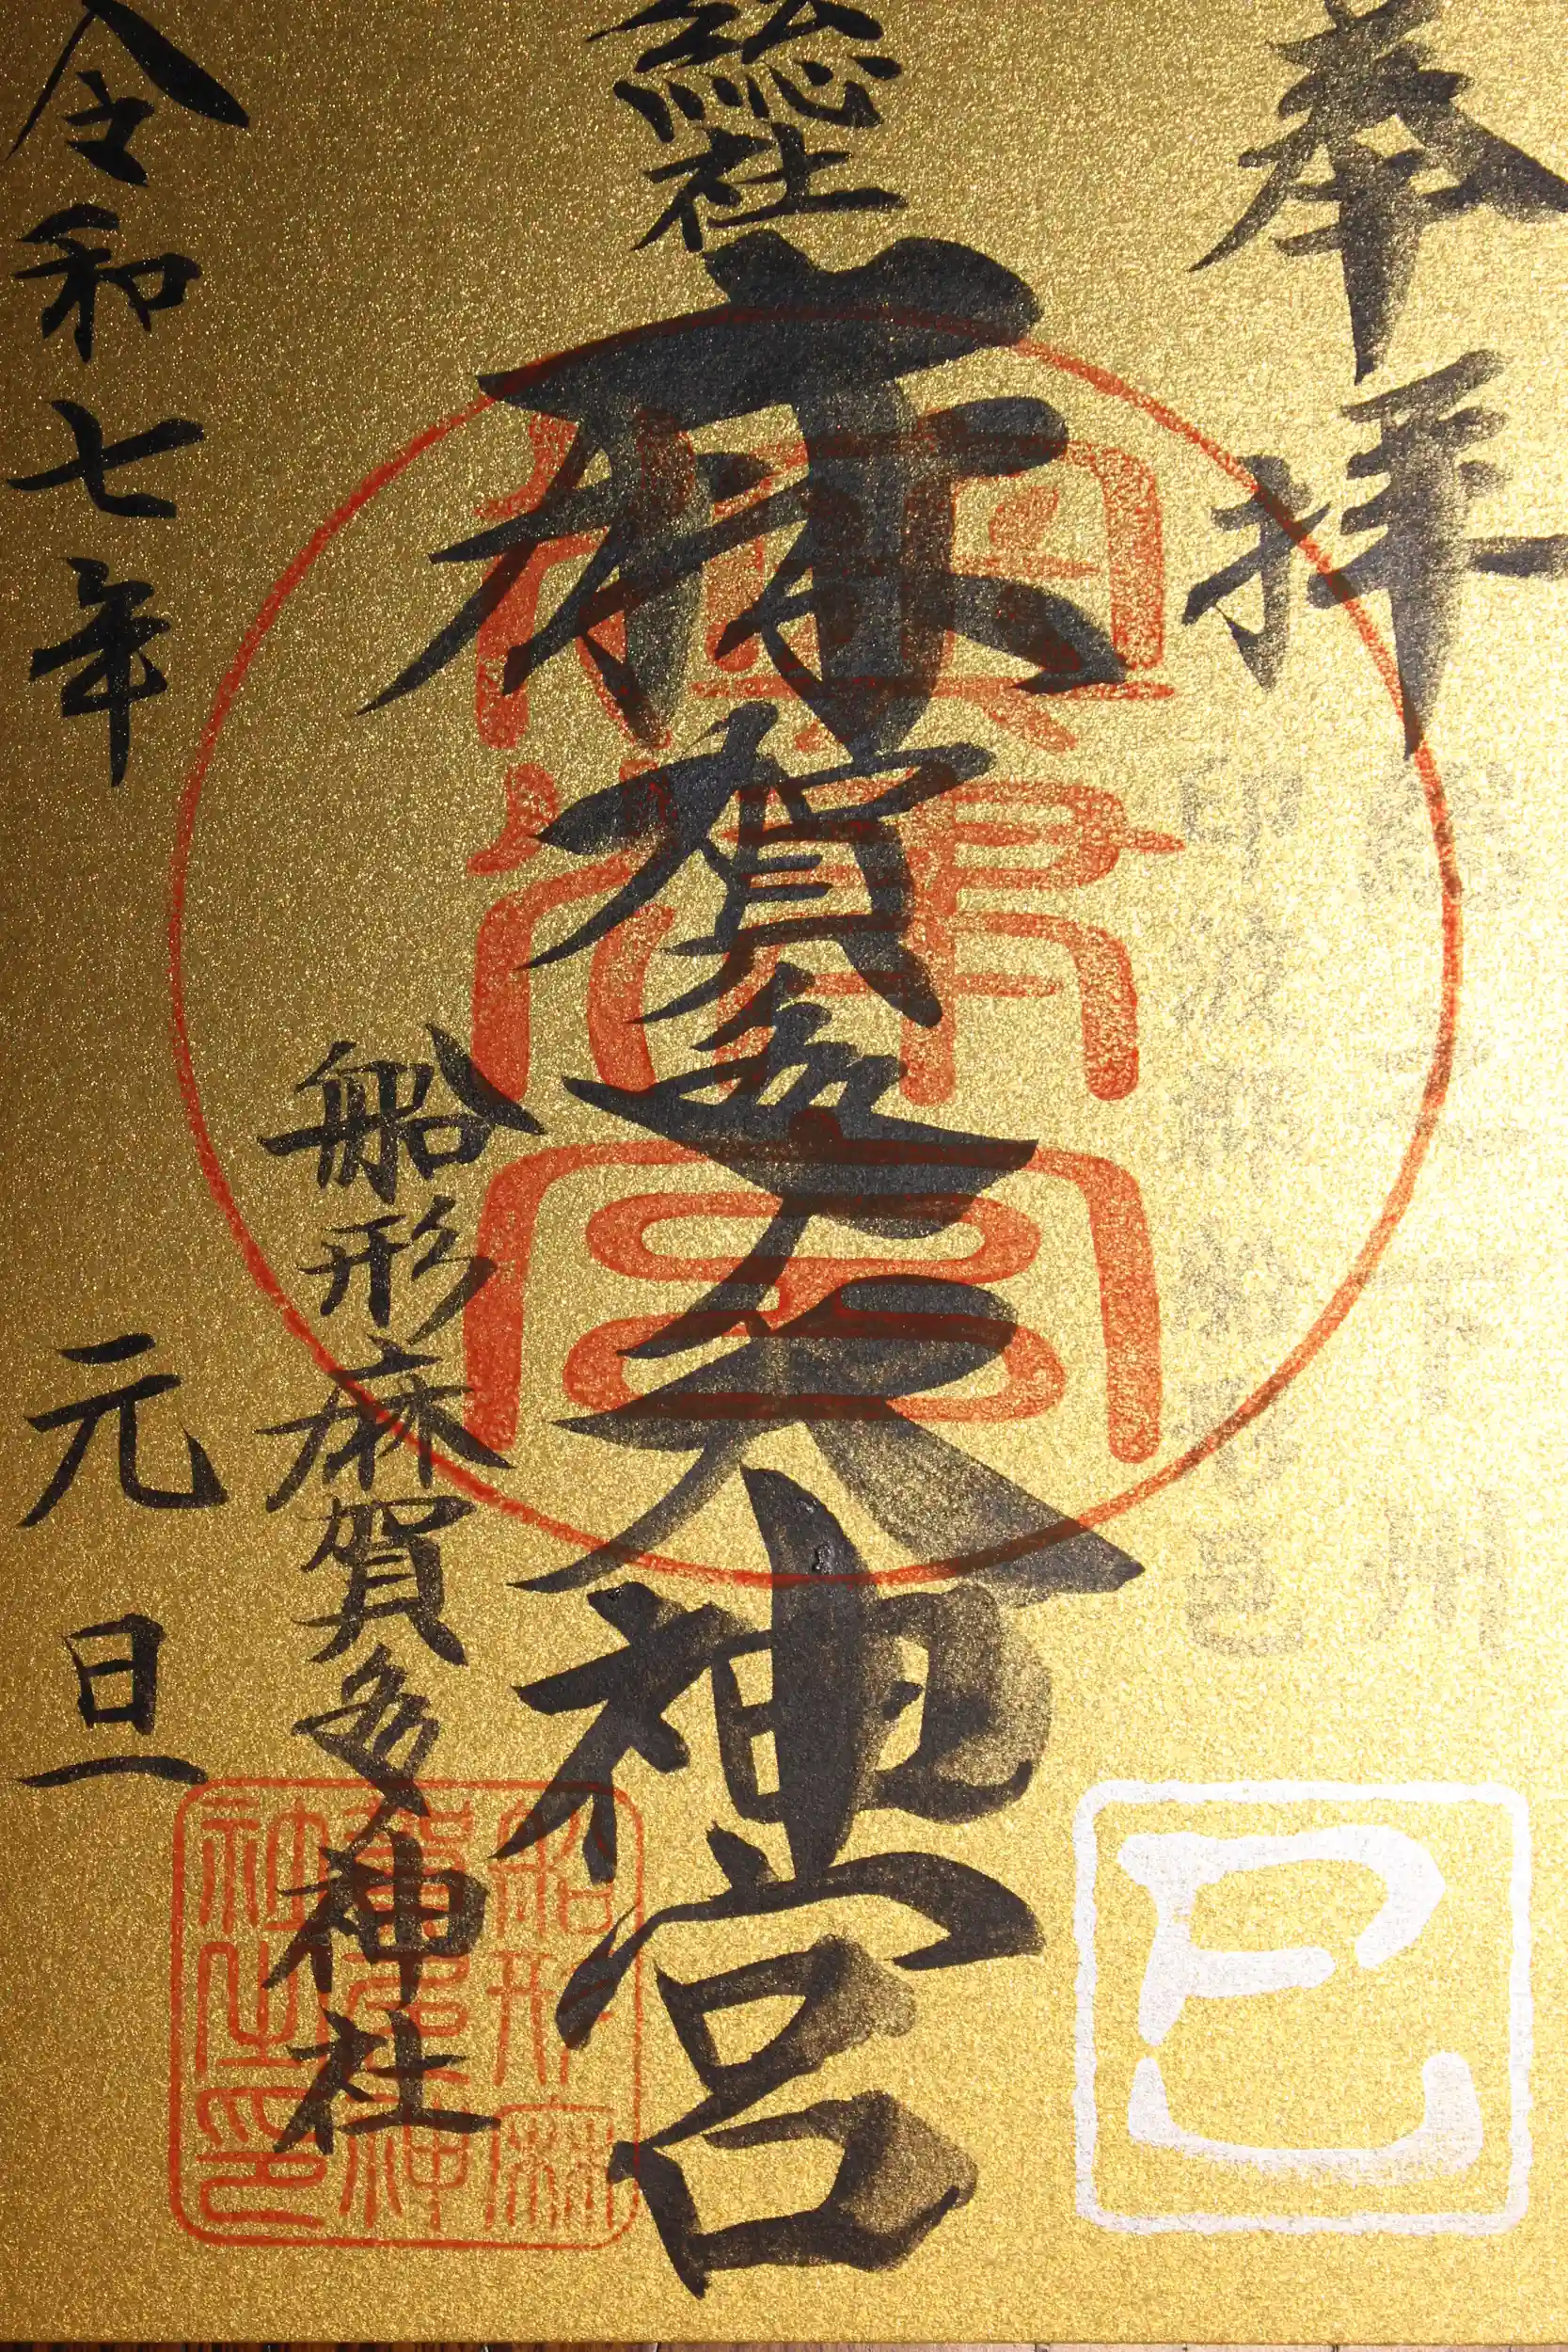 奉拝
総社
麻賀多大神宮
船形麻賀多神社
令和七年 元旦
巳
船形麻
賀多神
社之印